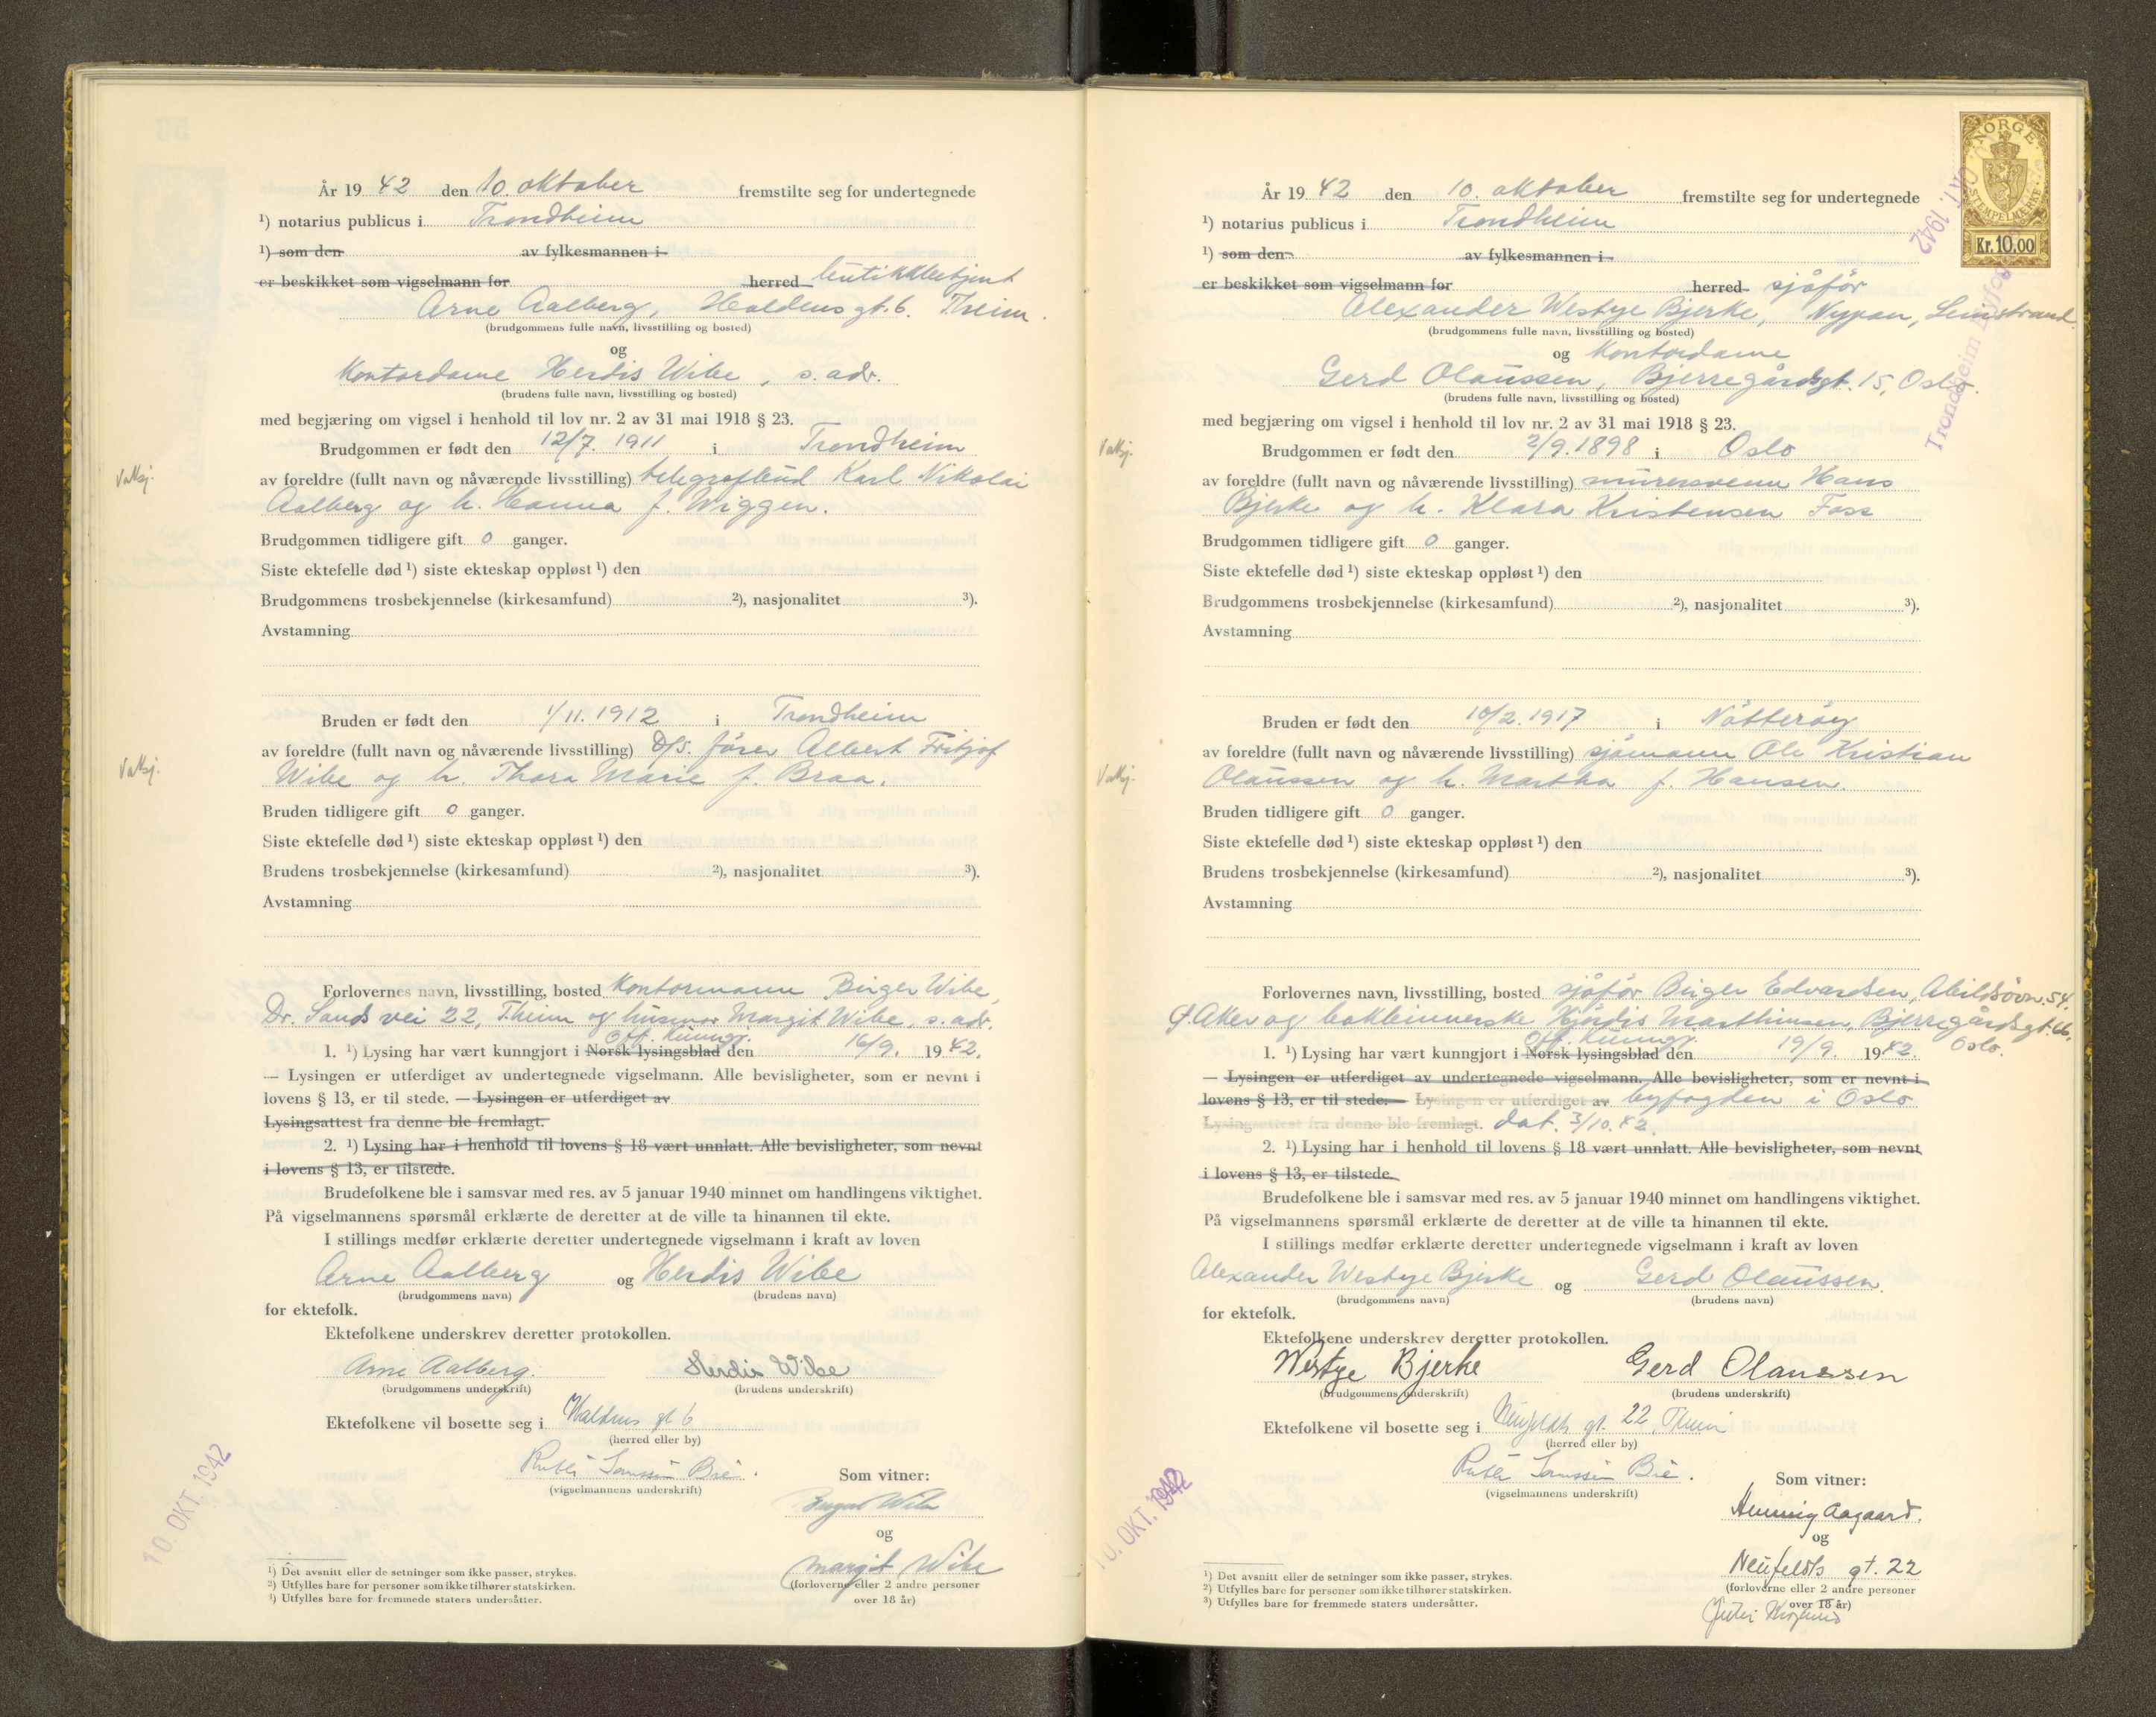 År 19 42 den 10. oktober fremstilte seg for undertegnede
¹) notarius publicus i Trondheim
¹) som den av fylkesmannen i
er beskikket som vigselmann for herred butikkbetjent
Arne Aalberg, Haldens gt. 6. T.heim.
(brudgommens fulle navn, livsstilling og bosted)
og
Kontordame Herdis Wibe, s. adr.
(brudens fulle navn, livsstilling og bosted)
med begjæring om vigsel i henhold til lov nr. 2 av 31 mai 1918 § 23.
Brudgommen er født den 12/7. 1911 i Trondheim
av foreldre (fullt navn og nåværende livsstilling) telegrafbud Karl Nikolai
Aalberg og h. Hanna f. Wiggen.
Brudgommen tidligere gift 0 ganger.
Siste ektefelle død ¹) siste ekteskap oppløst ¹) den
Brudgommens trosbekjennelse (kirkesamfund) ²), nasjonalitet ³).
Avstamning
Bruden er født den 1/11. 1912 i Trondheim
av foreldre (fullt navn og nåværende livsstilling) D/S. fører Albert Fritjof
Wibe og h. Thora Marie f. Braa.
Bruden tidligere gift 0 ganger.
Siste ektefelle død ¹) siste ekteskap oppløst ¹) den
Brudens trosbekjennelse (kirkesamfund) ²), nasjonalitet ³).
Avstamning
Forlovernes navn, livsstilling, bosted Kontormann Birger Wibe,
Dr. Sands vei 22, T.heim og husmor Margit Wibe, s. adr.
Off. kunngj.
1. ¹) Lysing har vært kunngjort i Norsk lysingsblad den 16/9. 1942.
— Lysingen er utferdiget av undertegnede vigselmann. Alle bevisligheter, som er nevnt i
lovens § 13, er til stede. — Lysingen er utferdiget av
Lysingsattest fra denne ble fremlagt.
2. ¹) Lysing har i henhold til lovens § 18 vært unnlatt. Alle bevisligheter, som nevnt
i lovens § 13, er tilstede.
Brudefolkene ble i samsvar med res. av 5 januar 1940 minnet om handlingens viktighet.
På vigselmannens spørsmål erklærte de deretter at de ville ta hinannen til ekte.
I stillings medfør erklærte deretter undertegnede vigselmann i kraft av loven
Arne Aalberg og Herdis Wibe
(brudgommens navn) (brudens navn)
for ektefolk.
Ektefolkene underskrev deretter protokollen.
Arne Aalberg. Herdis Wibe
(brudgommens underskrift) (brudens underskrift)
Ektefolkene vil bosette seg i gt 6
(herred eller by)
Bie.
(vigselmannens underskrift)
Som vitner:
Birger Wibe
og
Margit Wibe
(forloverne eller 2 andre personer
over 18 år)
10. OKT. 1942
¹) Det avsnitt eller de setninger som ikke passer, strykes.
²) Utfylles bare for personer som ikke tilhører statskirken.
³) Utfylles bare for fremmede staters undersåtter.
NORGE
STEMPELMERKE
Kr. 10.00
OKT. 1942
År 19 42 den 10. oktober fremstilte seg for undertegnede
¹) notarius publicus i Trondheim
¹) som den av fylkesmannen i
er beskikket som vigselmann for herred sjåfør
Alexander Westye Bjerke, Nypan, Leinstrand.
(brudgommens fulle navn, livsstilling og bosted)
og Kontordame
Gerd Olaussen, Bjerregårdsgt. 15, Oslo.
(brudens fulle navn, livsstilling og bosted)
med begjæring om vigsel i henhold til lov nr. 2 av 31 mai 1918 § 23.
Brudgommen er født den 2/9. 1898 i Oslo
av foreldre (fullt navn og nåværende livsstilling) murersvenn Hans
Bjerke og h. Klara Kristensen Foss
Brudgommen tidligere gift 0 ganger.
Siste ektefelle død ¹) siste ekteskap oppløst ¹) den
Brudgommens trosbekjennelse (kirkesamfund) ²), nasjonalitet ³).
Avstamning
Bruden er født den 10/2. 1917 i Nøtterøy
av foreldre (fullt navn og nåværende livsstilling) sjømann Ole Kristian
Olaussen og h. Martha f. Hansen.
Bruden tidligere gift 0 ganger.
Siste ektefelle død ¹) siste ekteskap oppløst ¹) den
Brudens trosbekjennelse (kirkesamfund) ²), nasjonalitet ³).
Avstamning
Forlovernes navn, livsstilling, bosted sjåfør Birger Edvardsen, 54.
Aker og bokbinnerske Hjørdis Marthinsen, Bjerregårdsgt. 66,
Oslo.
Off. kunngj.
1. ¹) Lysing har vært kunngjort i Norsk lysingsblad den 19/9. 1942.
— Lysingen er utferdiget av undertegnede vigselmann. Alle bevisligheter, som er nevnt i
lovens § 13, er til stede. — Lysingen er utferdiget av byfogden i Oslo
Lysingsattest fra denne ble fremlagt. dat. 3/10. 42.
2. ¹) Lysing har i henhold til lovens § 18 vært unnlatt. Alle bevisligheter, som nevnt
i lovens § 13, er tilstede.
Brudefolkene ble i samsvar med res. av 5 januar 1940 minnet om handlingens viktighet.
På vigselmannens spørsmål erklærte de deretter at de ville ta hinannen til ekte.
I stillings medfør erklærte deretter undertegnede vigselmann i kraft av loven
Alexander Westye Bjerke og Gerd Olaussen.
(brudgommens navn) (brudens navn)
for ektefolk.
Ektefolkene underskrev deretter protokollen.
Westye Bjerke Gerd Olaussen
(brudgommens underskrift) (brudens underskrift)
Ektefolkene vil bosette seg i gt. 22
(herred eller by)
Bie.
(vigselmannens underskrift)
Som vitner:
Henning Aagaard.
og
Neufeldts gt. 22
(forloverne eller 2 andre personer
over 18 år)
10. OKT. 1942
¹) Det avsnitt eller de setninger som ikke passer, strykes.
²) Utfylles bare for personer som ikke tilhører statskirken.
³) Utfylles bare for fremmede staters undersåtter.